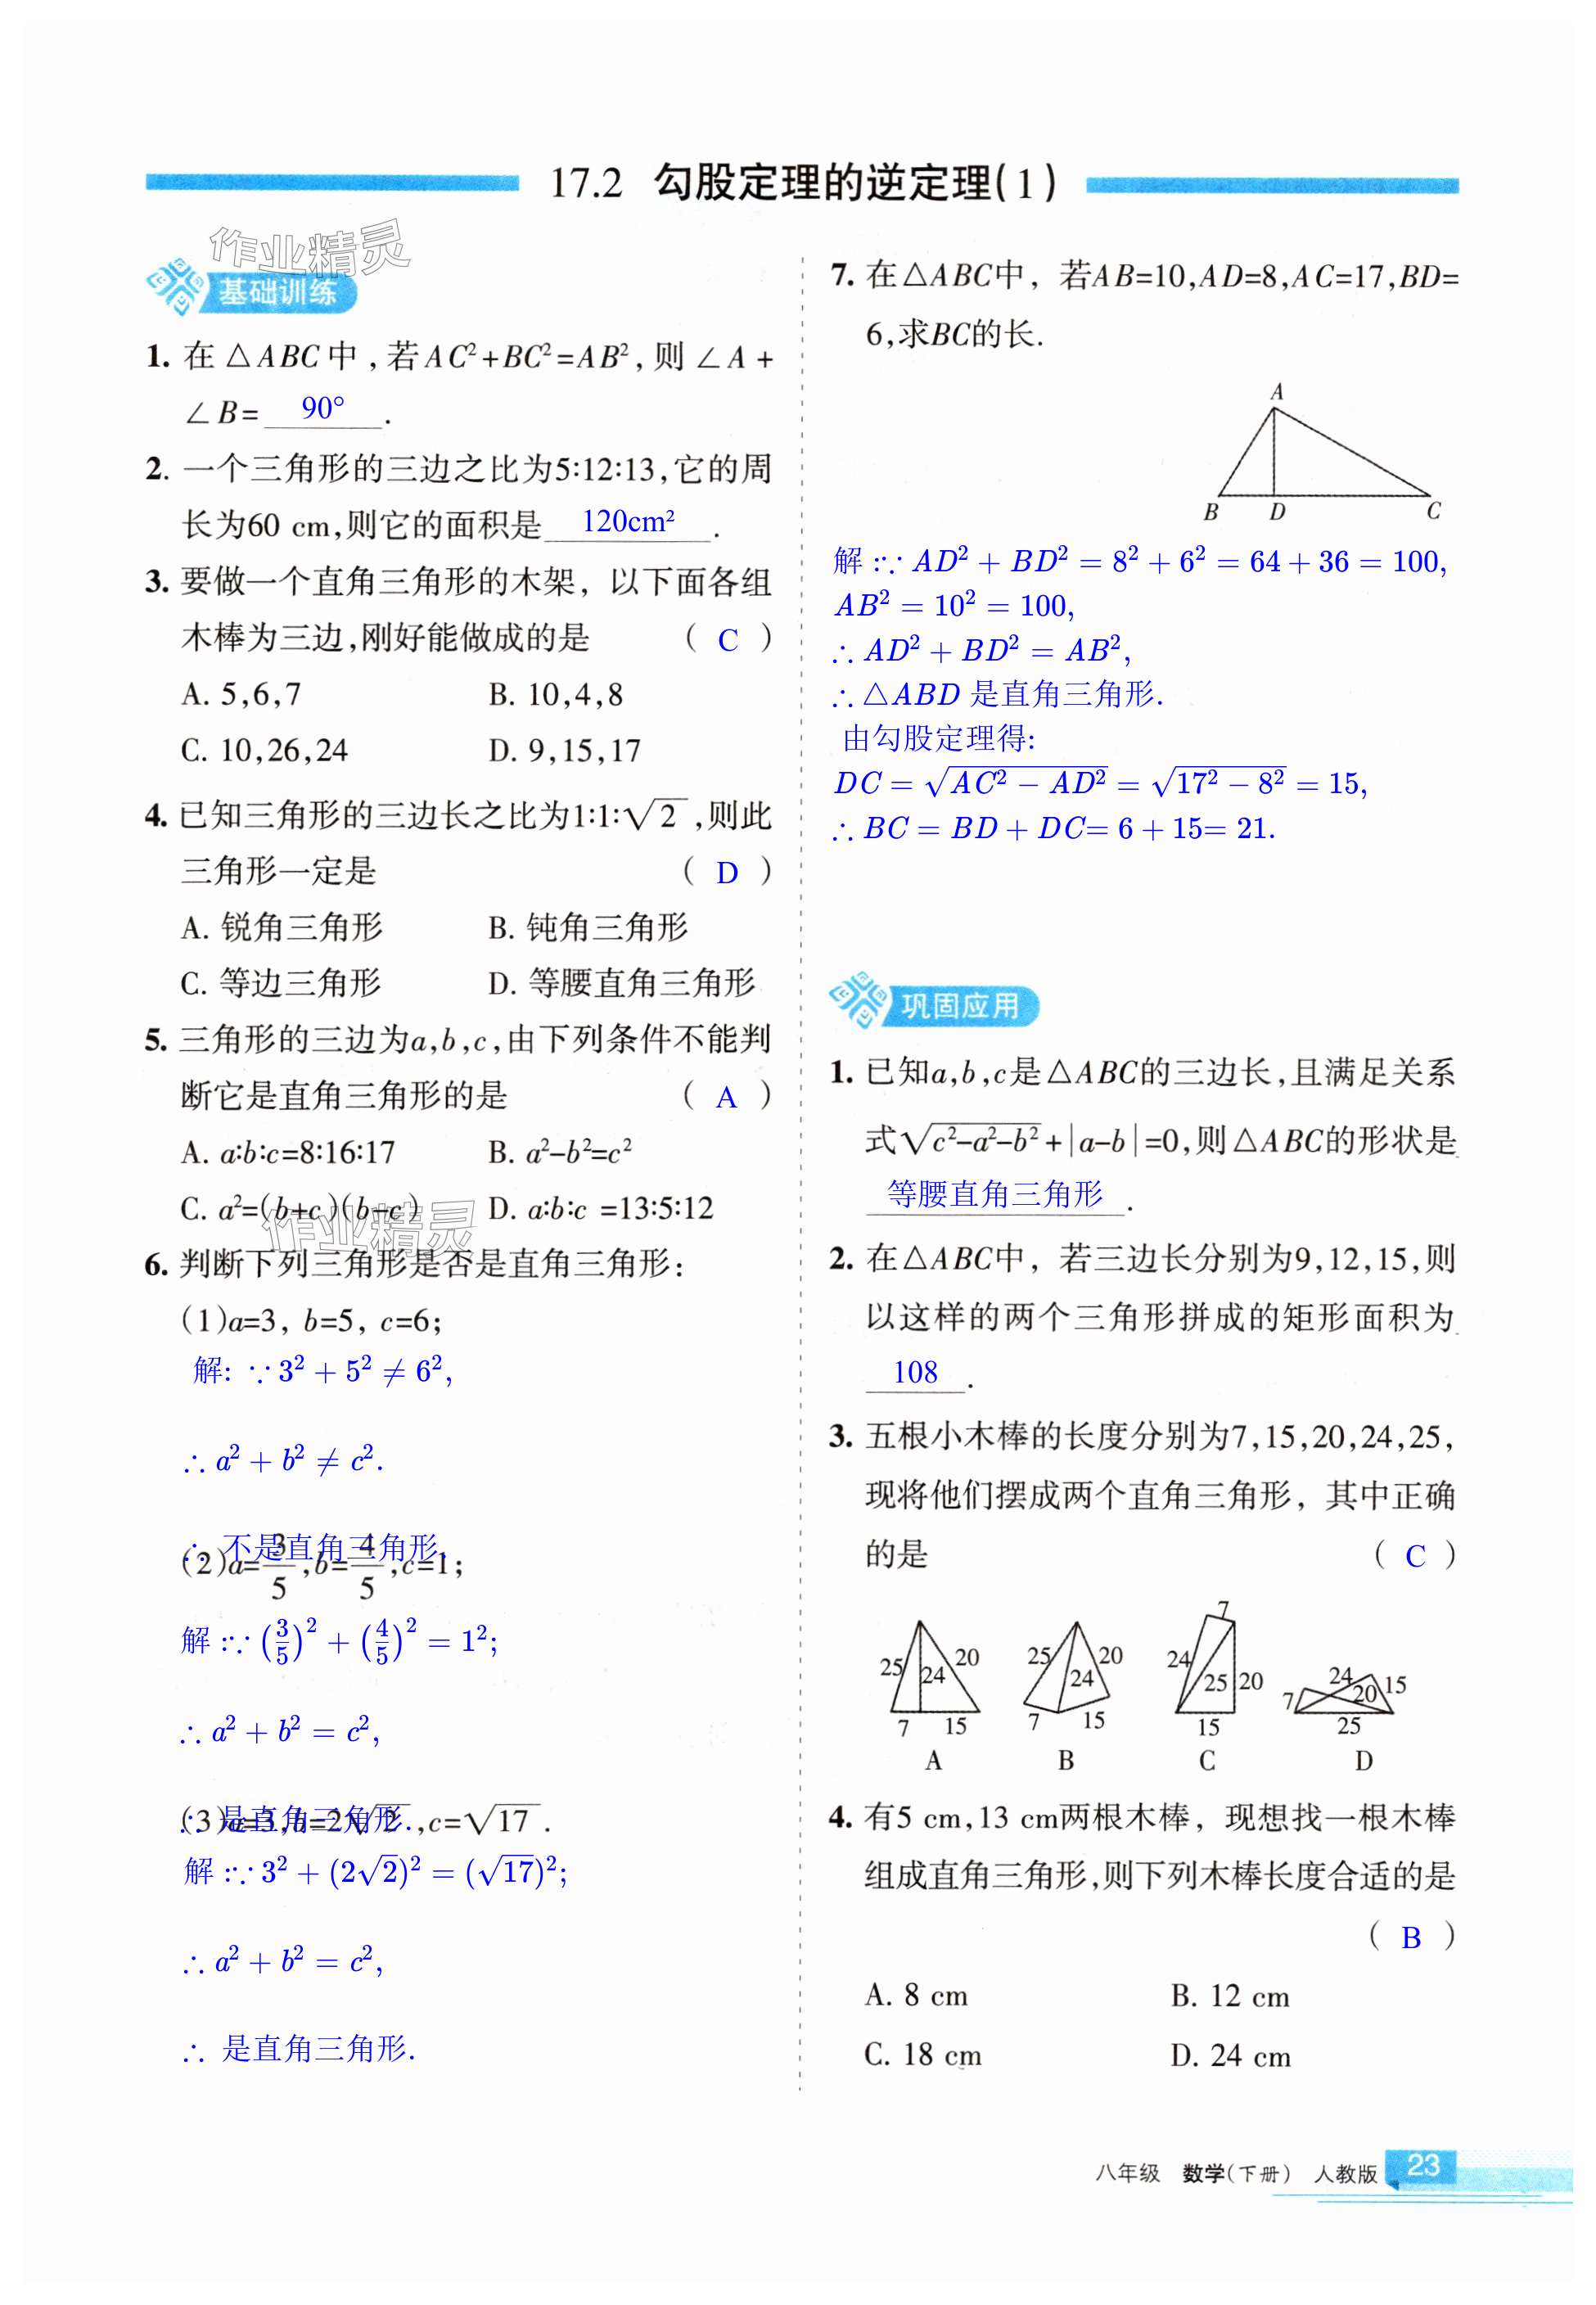 17.2 勾股定理的逆定理(1)
作业精灵
基础训练
1. 在△ABC中,若AC²+BC²=AB²,则∠A+
∠B= 90° .
2. 一个三角形的三边之比为5:12:13,它的周
长为60 cm,则它的面积是 120cm² .
3. 要做一个直角三角形的木架，以下面各组
木棒为三边,刚好能做成的是 ( C )
A. 5,6,7 B. 10,4,8
C. 10,26,24 D. 9,15,17
4. 已知三角形的三边长之比为1:1:√2,则此
三角形一定是 ( D )
A. 锐角三角形 B. 钝角三角形
C. 等边三角形 D. 等腰直角三角形
5. 三角形的三边为a,b,c,由下列条件不能判
断它是直角三角形的是 ( A )
A. a:b:c=8:16:17 B. a²-b²=c²
C. a²=(b+c)(b-c) D. a:b:c =13:5:12
作业精灵
6. 判断下列三角形是否是直角三角形：
(1)a=3, b=5, c=6;
解: ∵3²+5²≠6²,
∴a²+b²≠c².
∴ 不是直角三角形.
(2)a=3/5,b=4/5,c=1;
解:∵(3/5)²+(4/5)²=1²;
∴a²+b²=c²,
∴ 是直角三角形.
(3)a=3,b=2√2,c=√17.
解:∵3²+(2√2)²=(√17)²;
∴a²+b²=c²,
∴ 是直角三角形.
7. 在△ABC中，若AB=10,AD=8,AC=17,BD=
6,求BC的长.
A
B D C
解:∵AD²+BD²=8²+6²=64+36=100,
AB²=10²=100,
∴AD²+BD²=AB²,
∴△ABD 是直角三角形.
由勾股定理得:
DC=√(AC²-AD²)=√(17²-8²)=15,
∴BC=BD+DC=6+15=21.
巩固应用
1. 已知a,b,c是△ABC的三边长,且满足关系
式√(c²-a²-b²)+|a-b|=0,则△ABC的形状是
等腰直角三角形 .
2. 在△ABC中，若三边长分别为9,12,15,则
以这样的两个三角形拼成的矩形面积为
108 .
3. 五根小木棒的长度分别为7,15,20,24,25,
现将他们摆成两个直角三角形，其中正确
的是 ( C )
25 24 20 7 15
25 24 20 7 15
7 24 25 20 15
7 24 20 15 25
A B C D
4. 有5 cm,13 cm两根木棒，现想找一根木棒
组成直角三角形,则下列木棒长度合适的是
( B )
A. 8 cm B. 12 cm
C. 18 cm D. 24 cm
八年级 数学(下册) 人教版 23